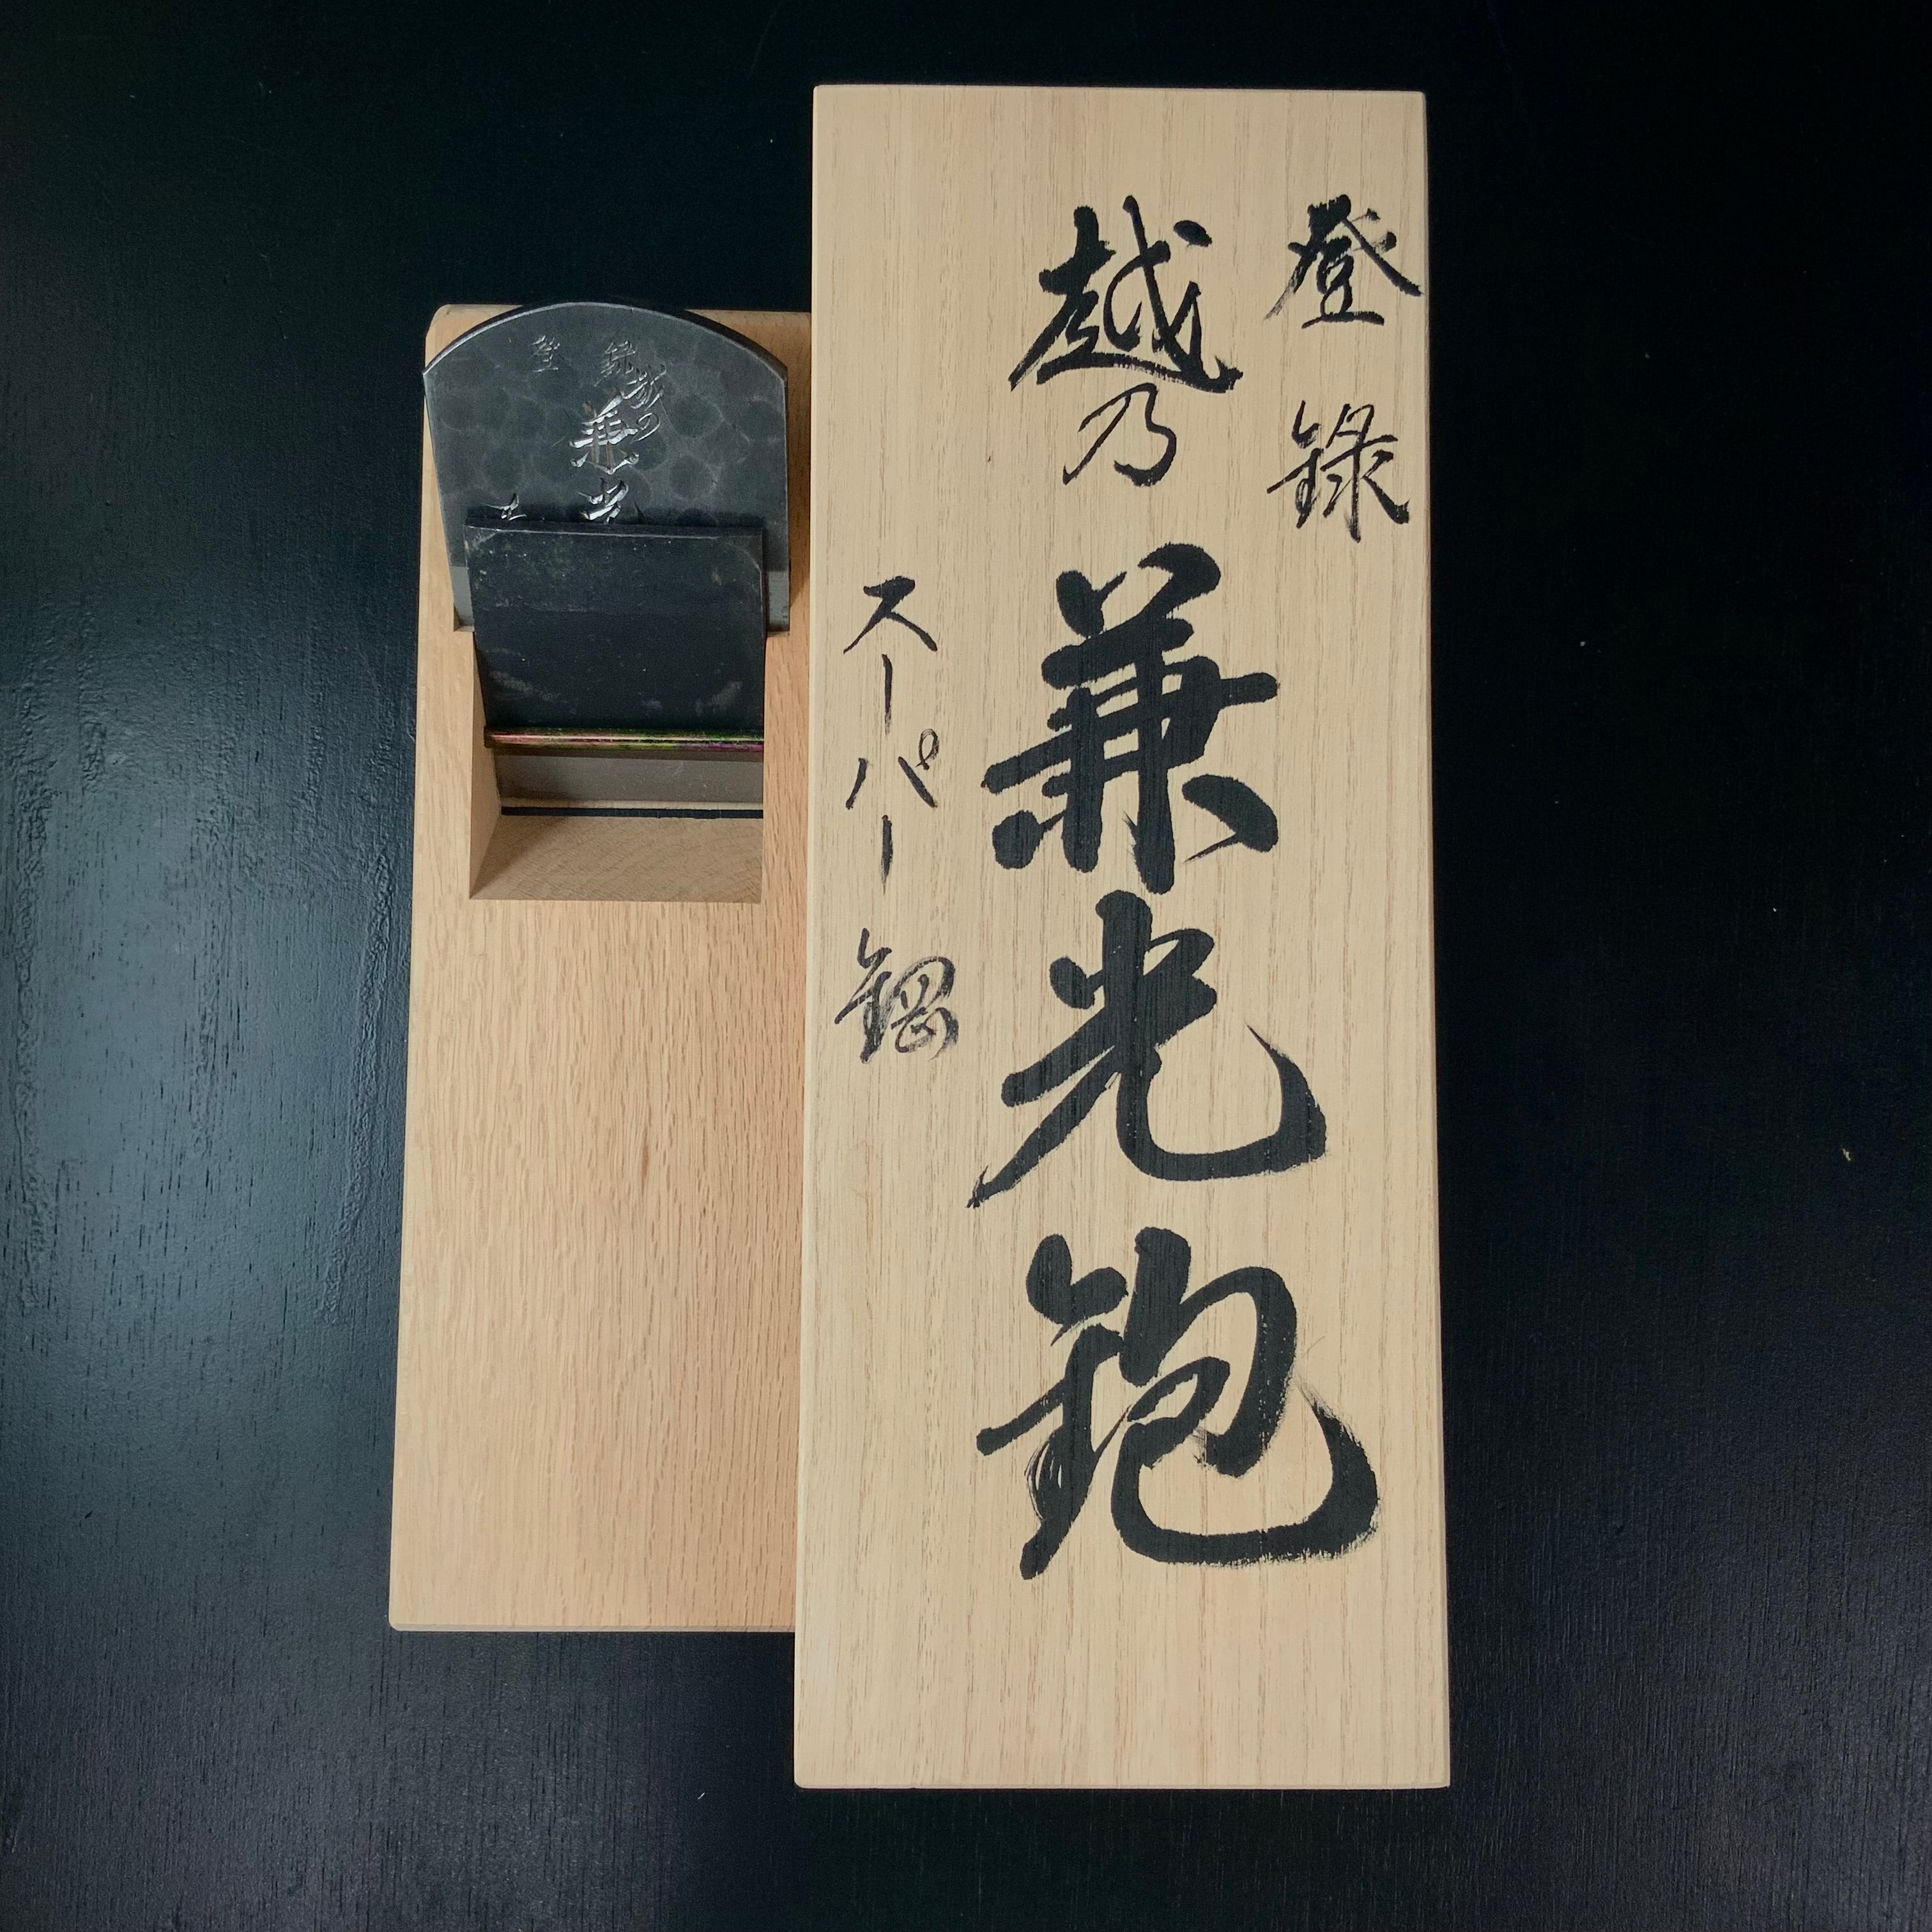 登録
越乃兼光鉋
スーパー鋼
登録
越の
兼光